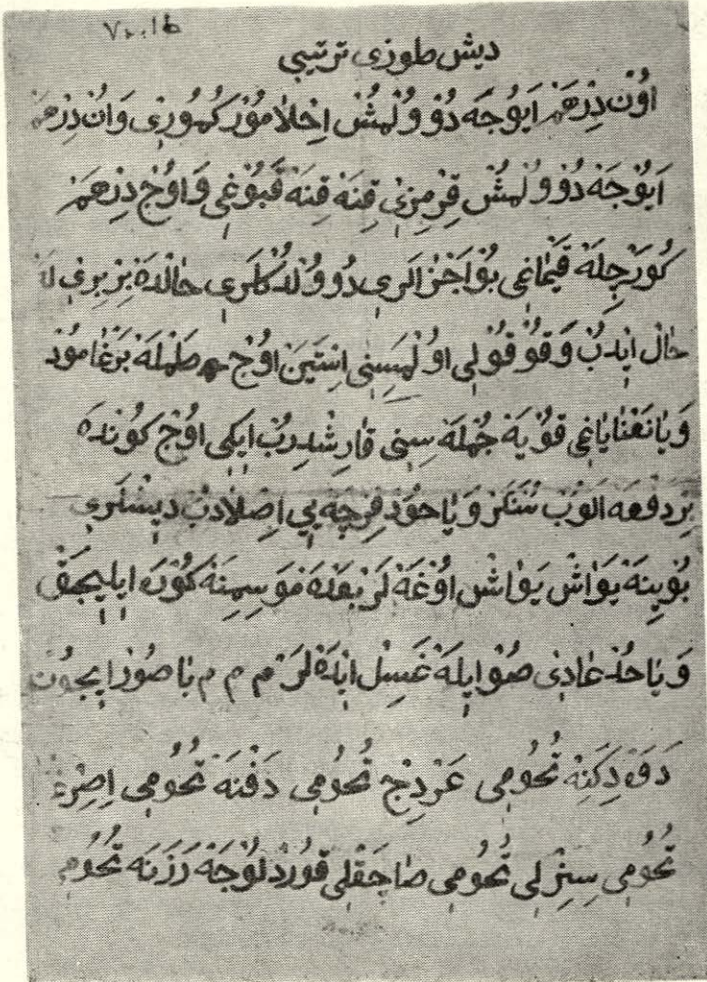 ديش طوزى ترتيبى
اوُن دِرْهَمْ اَيُوجَه دُوُولْمُشْ اِخْلاَمُوْر كُمُورِى وَ اوُن دِرْهَمْ
اَيُوْجَه دُوُولْمُشْ قِرْمِزِى قِنَه قِنَه قَبُوْغِى وَ اوُچ دِرْهَمْ
كُوَرْچِلَه قَيْمَاغِى بُوْ اَجْزَالَرِى دُوُولْدُكْلَرِى حَالْدَه بِرْ بِرِى لَه
حَال اِيدُبْ وَ قُوْقُوْلِى اوُلْمَسِنِى اِسْتَيَنْ اوُچ طَمْلَه بَرْغَامُوْد
وَيَا نَعْنَا يَاغِى قُوْيَه جُمْلَه سِنِى قَارِشْدِرُبْ اِيكِى اوُچ كُونْدَه
بِرْ دَفْعَه الوُبْ سُنْكَرْ وَيَاخُوْدْ فِرْچَه يِى اِصْلاَدُبْ دِيشْلَرِى
بُوْيِنَه يَوَاشْ يَوَاشْ اوُغَه لَرْ بَعْدَه مَوْسِمِنَه كُوْرَه اِيلِيجَقْ
وَيَاخُدْ عَادِى صُو اِيلَه غَسِلْ اِيدَه لَرْ م م م بَاصُوْر اِيچُونْ
دَوَه دِكَنِه تُحُوْمِى عَرْدِجْ تُحُوْمِى دَفْنَه تُحُوْمِى اِصِرْغَنْ
تُحُوْمِى سِيزْلِى تُحُوْمِى صَاچَقْلِى قُوْرْدْلُوْجَه رَزَنَه تُحُوْمِى